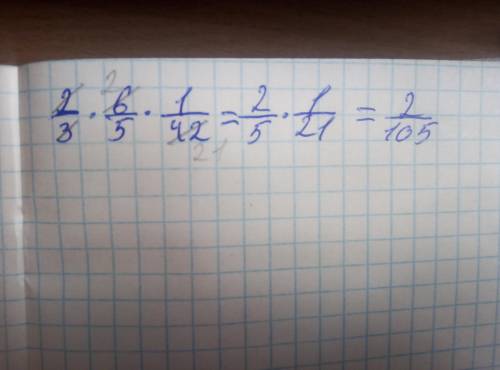 2/3 · 6/5 · 1/42 = 2/5 · 1/21 = 2/105
2
21